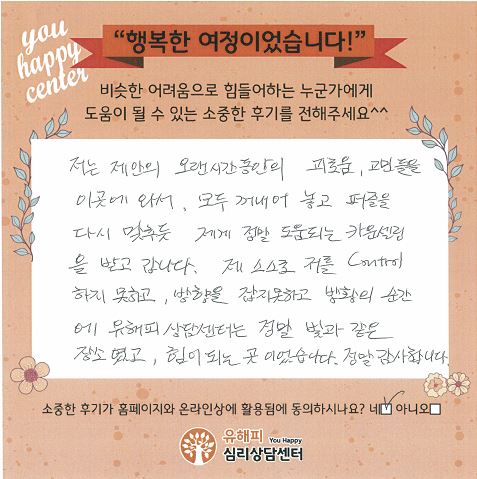 you
happy
center
“행복한 여정이었습니다!”
비슷한 어려움으로 힘들어하는 누군가에게
도움이 될 수 있는 소중한 후기를 전해주세요^^
저는 제안의 오랜시간동안의 괴로움, 고민들을
이곳에 와서, 모두 꺼내어 놓고 퍼즐을
다시 맞추듯 제게 정말 도움되는 카운셀링
을 받고 갑니다. 제 스스로 저를 Control
하지 못하고, 방향을 잡지못하고 방황의 순간
에 유해피 상담센터는 정말 빛과 같은
장소였고, 힘이 되는 곳이었습니다. 정말 감사합니다
소중한 후기가 홈페이지와 온라인상에 활용됨에 동의하시나요? 네 아니오
유해피 You Happy
심리상담센터